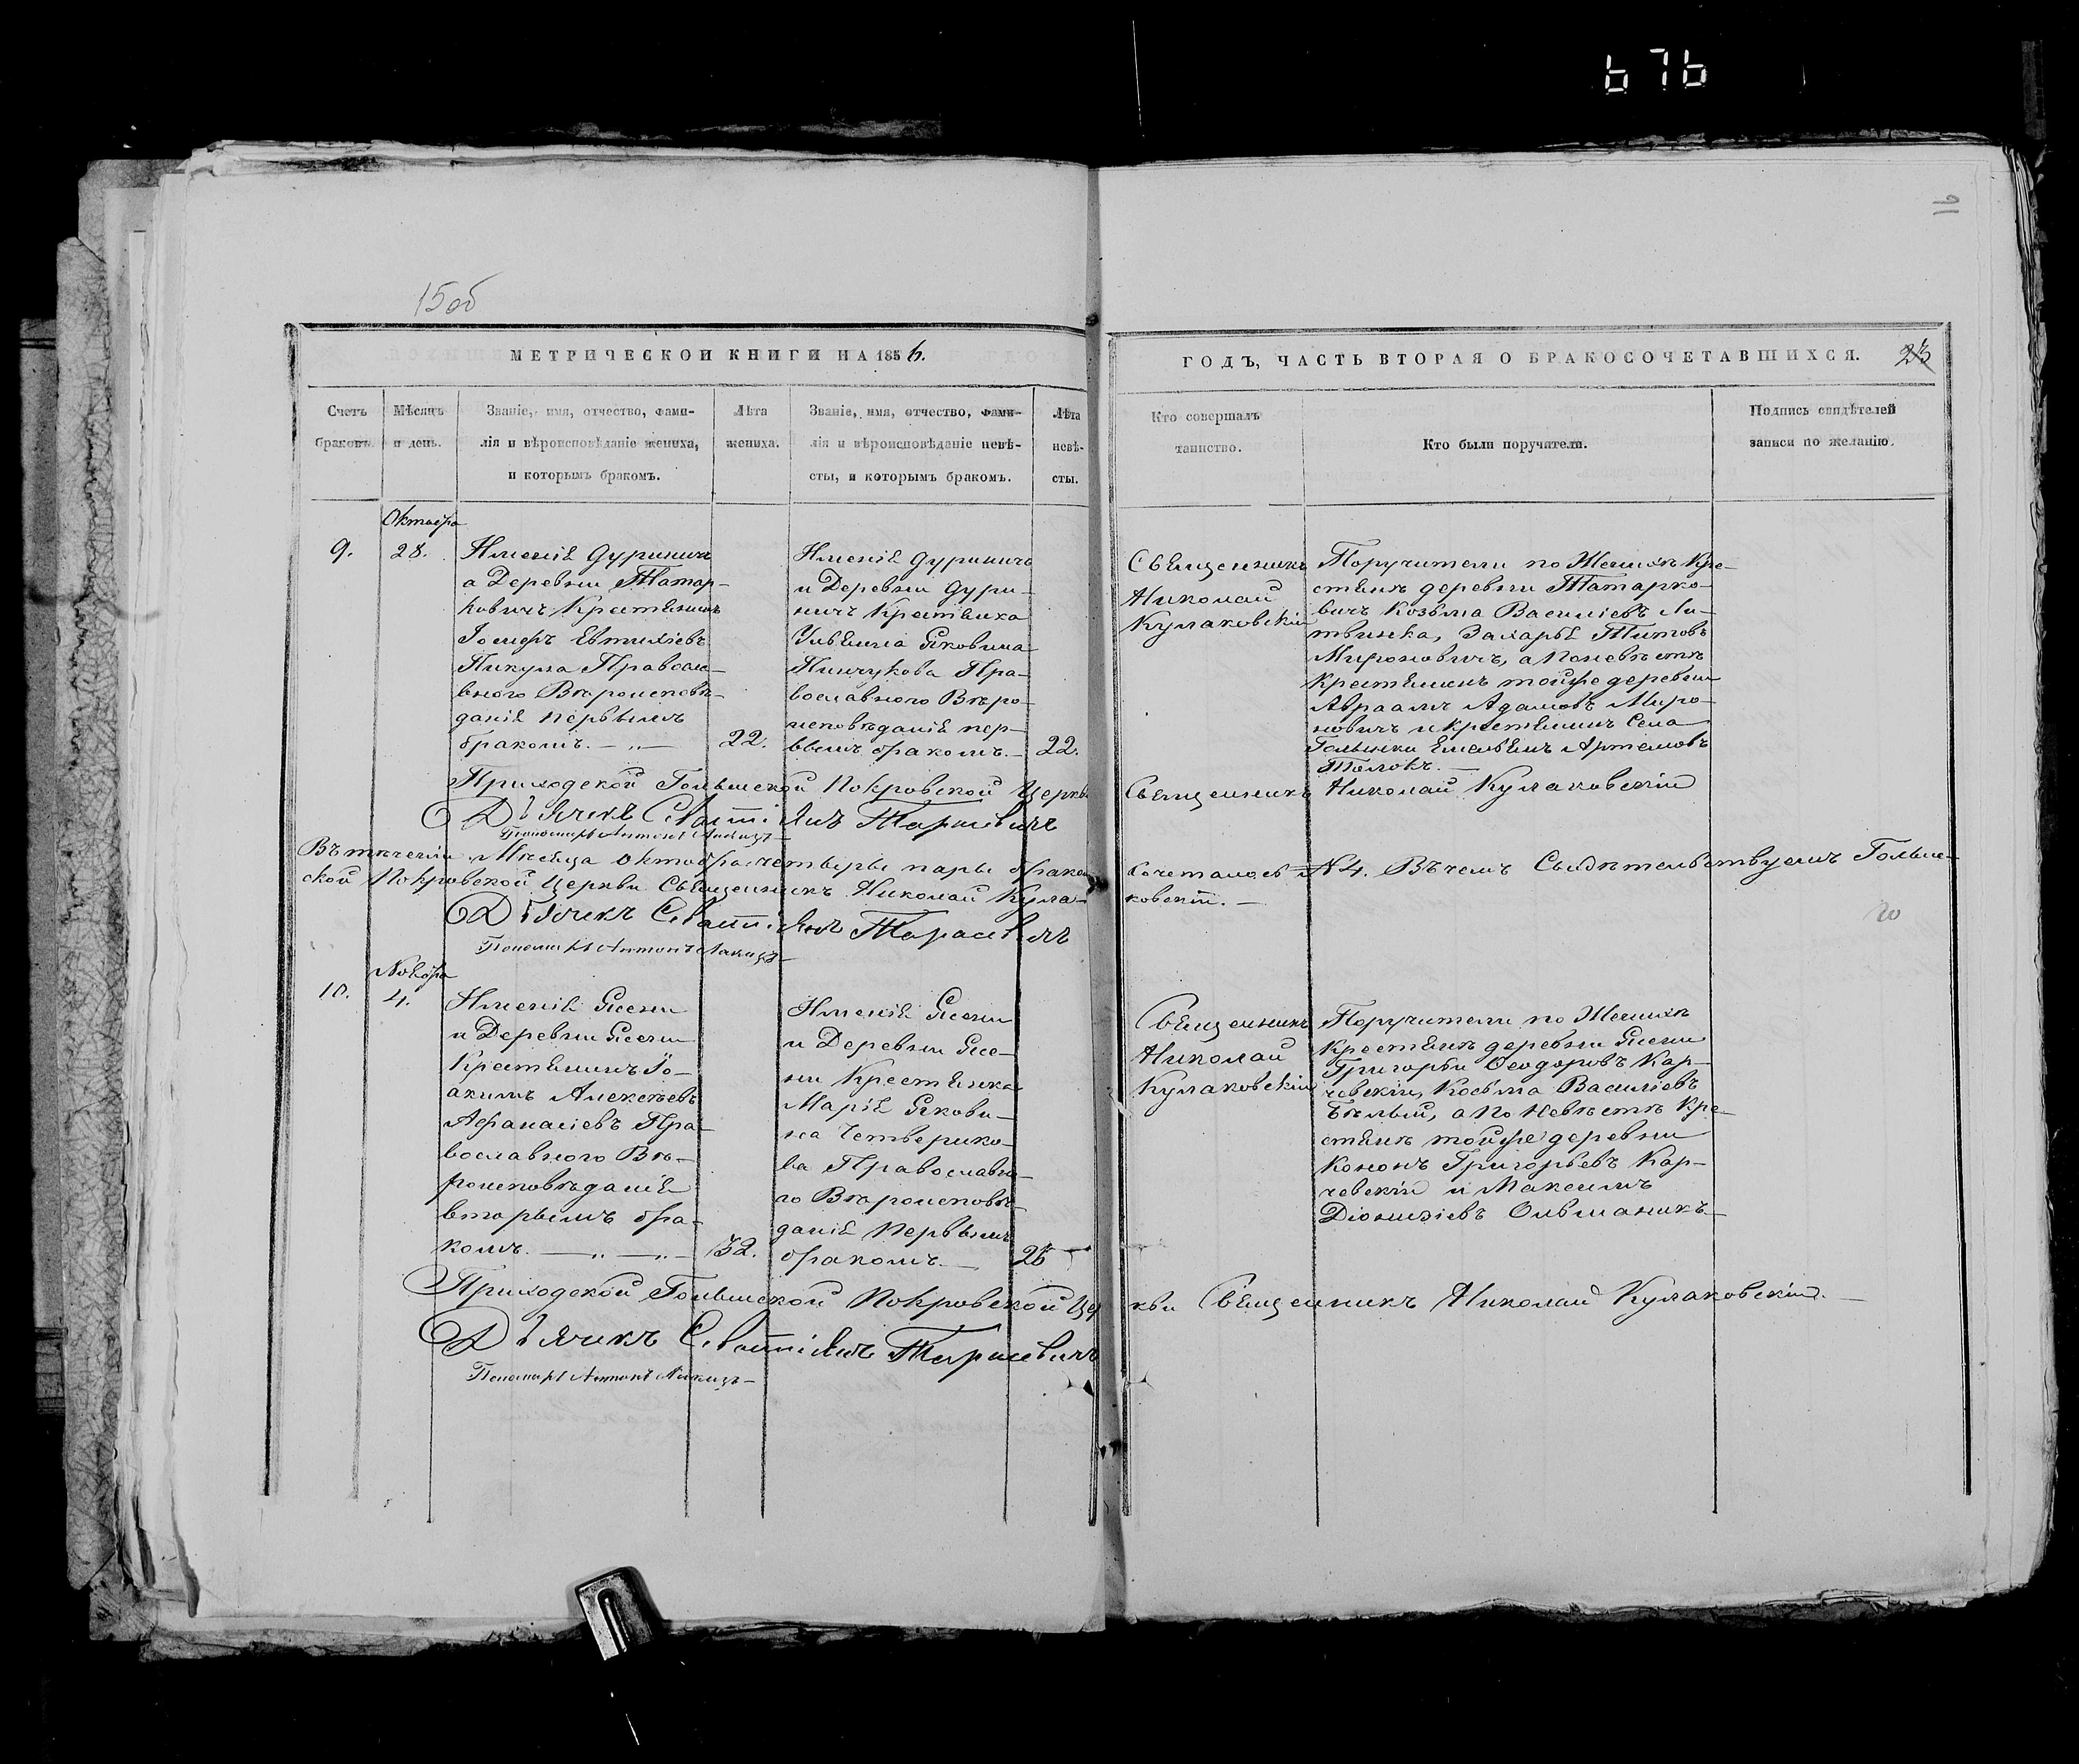 676
16
15 об
МЕТРИЧЕСКОЙ КНИГИ НА 1856.
ГОДЪ, ЧАСТЬ ВТОРАЯ О БРАКОСОЧЕТАВШИХСЯ.
23
Счетъ
браковъ.
Мѣсяцъ
и день.
Званіе, имя, отчество, фами-
лія и вѣроисповѣданіе жениха,
и которымъ бракомъ.
Лѣта
жениха.
Званіе, имя, отчество, фами-
лія и вѣроисповѣданіе невѣ-
сты, и которымъ бракомъ.
Лѣта
невѣ-
сты.
Кто совершалъ
таинство.
Кто были поручатели.
Подпись свидѣтелей
записи по желанію.
Октября
9.
28.
Имѣнія Дуриничъ
а Деревни Татар-
ковичъ Крестянинъ
Іосифъ Евтихіевъ
Пикула Правосла-
вного Вѣроисповѣ-
данія первымъ
бракомъ.
22.
Имѣнія Дуриничъ
и Деревни Дури-
ничъ Крестянка
Ульяна Яковина
Пинчукова Пра-
вославного Вѣро-
исповѣданія пер-
ввымъ бракомъ.
22.
Священникъ
Николай
Кулаковскій
Поручители по Женихѣ Кре-
стяне деревни Татарко-
вичъ Козьма Василіевъ Ли-
твинка, Захарья Титовъ
Мироновичъ, а по невѣстѣ
Крестянинъ тойже деревни
Авраамъ Адамовъ Миро-
новичъ и крестянинъ Села
Голынки Емельянъ Артемовъ
Толокъ.
Приходской Голынской Покровской Церкви
Священникъ Николай Кулаковскій
Дьячекъ Севастіянъ Тарасевичъ
Пономарь Антонъ
Въ теченіи Мѣсяца Октобра четыре пары брако
сочеталось № 4. Въ чемъ Свидѣтельствуемъ Голын-
ской Покровской Церкви Священникъ Николай Кула-
ковскій.
Дьячекъ Севастіянъ Тарасевичъ
Пономарь Антонъ
20
Ноября
10.
4.
Имѣнія Ясени
и Деревни Ясени
Крестянинъ Іо-
акимъ Алексѣевъ
Афанасіевъ Пра-
вославного Вѣ-
роисповѣданія
вторымъ бра-
комъ.
32.
Имѣнія Ясени
и Деревни Ясе-
ни Крестянка
Марія Якови-
на Четверико-
ва Православно-
го Вѣроисповѣ-
данія Первымъ
бракомъ.
26
Священникъ
Николай
Кулаковскій
Поручители по Женихѣ
Крестяне деревни Ясени
Григорьи Ѳеодоровъ Кар-
чевскій, Косьма Василіевъ
Бѣлый, а По Невѣстѣ Кре-
стяне тойже деревни
Кононъ Григорьевъ Кар-
чевскій и Максимъ
Діонизіевъ Ольшаникъ
Приходской Голынской Покровской Це
ркви Священникъ Николай Кулаковскій.
Дьячекъ Севастіянъ Тарасевичъ
Пономарь Антонъ